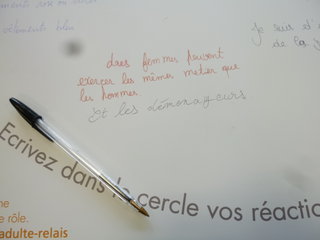 vêtements bleu
Je suis d'
de la
daes femmes peuvent
exercer les mêmes metier que
les hommes
Et les démenageurs
Ecrivez dans le cercle vos réactio
ne
e rôle.
adulte-relais